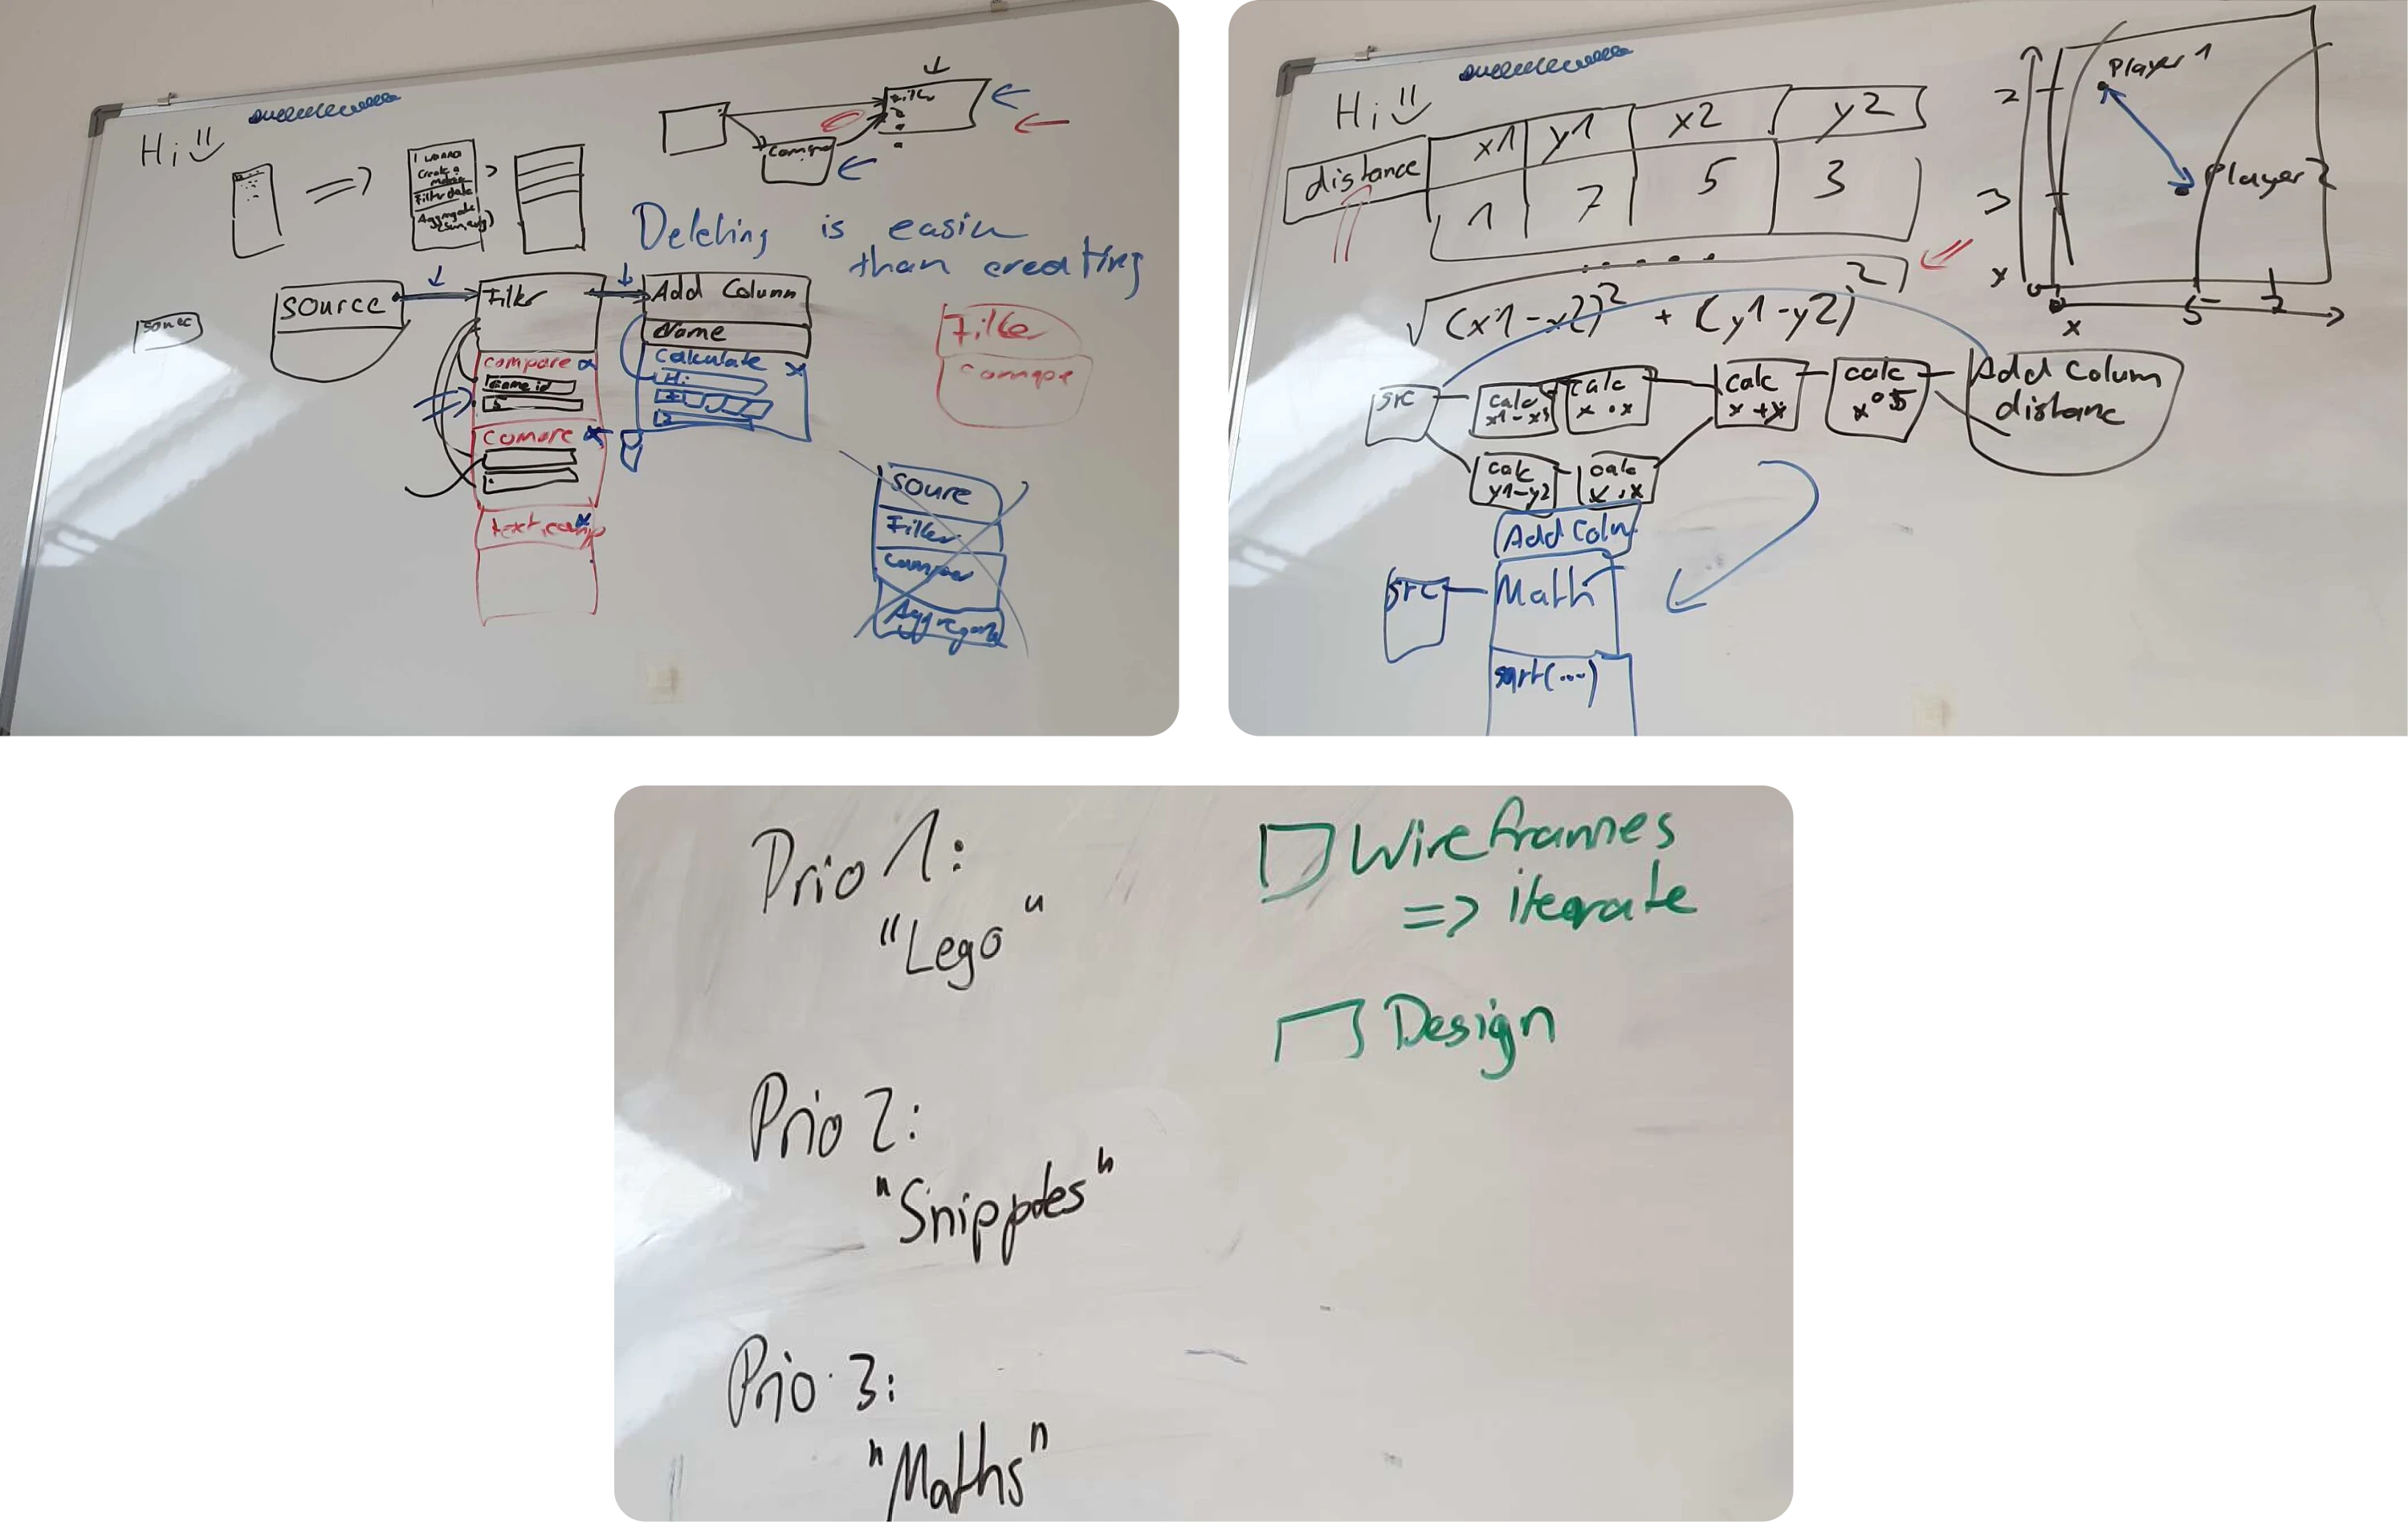 Hi
I wanna
Create a
Filter data
Aggregate
Filter
Compare
Deleting is easier
than creating
source
source
Filter
compare
Game id
5
Comare
text comp
Add Column
Name
Calculate
Filter
Compare
soure
Filter
Compar
Aggregate
Hi
distance
x1 y1 x2 y2
1 7 5 3
√(x1-x2)² + (y1-y2)²
Player 1
Player 2
2
3
x
x
5
7
src
calc
calc
x · x
calc
x + x
calc
x^0.5
Add Colum
distanc
calc
y1-y2
calc
x · x
Add Colum
src
Math
sqrt(...)
Prio 1:
"Lego"
Wireframes
=> iterate
Design
Prio 2:
"Snipptes"
Prio 3:
"Maths"